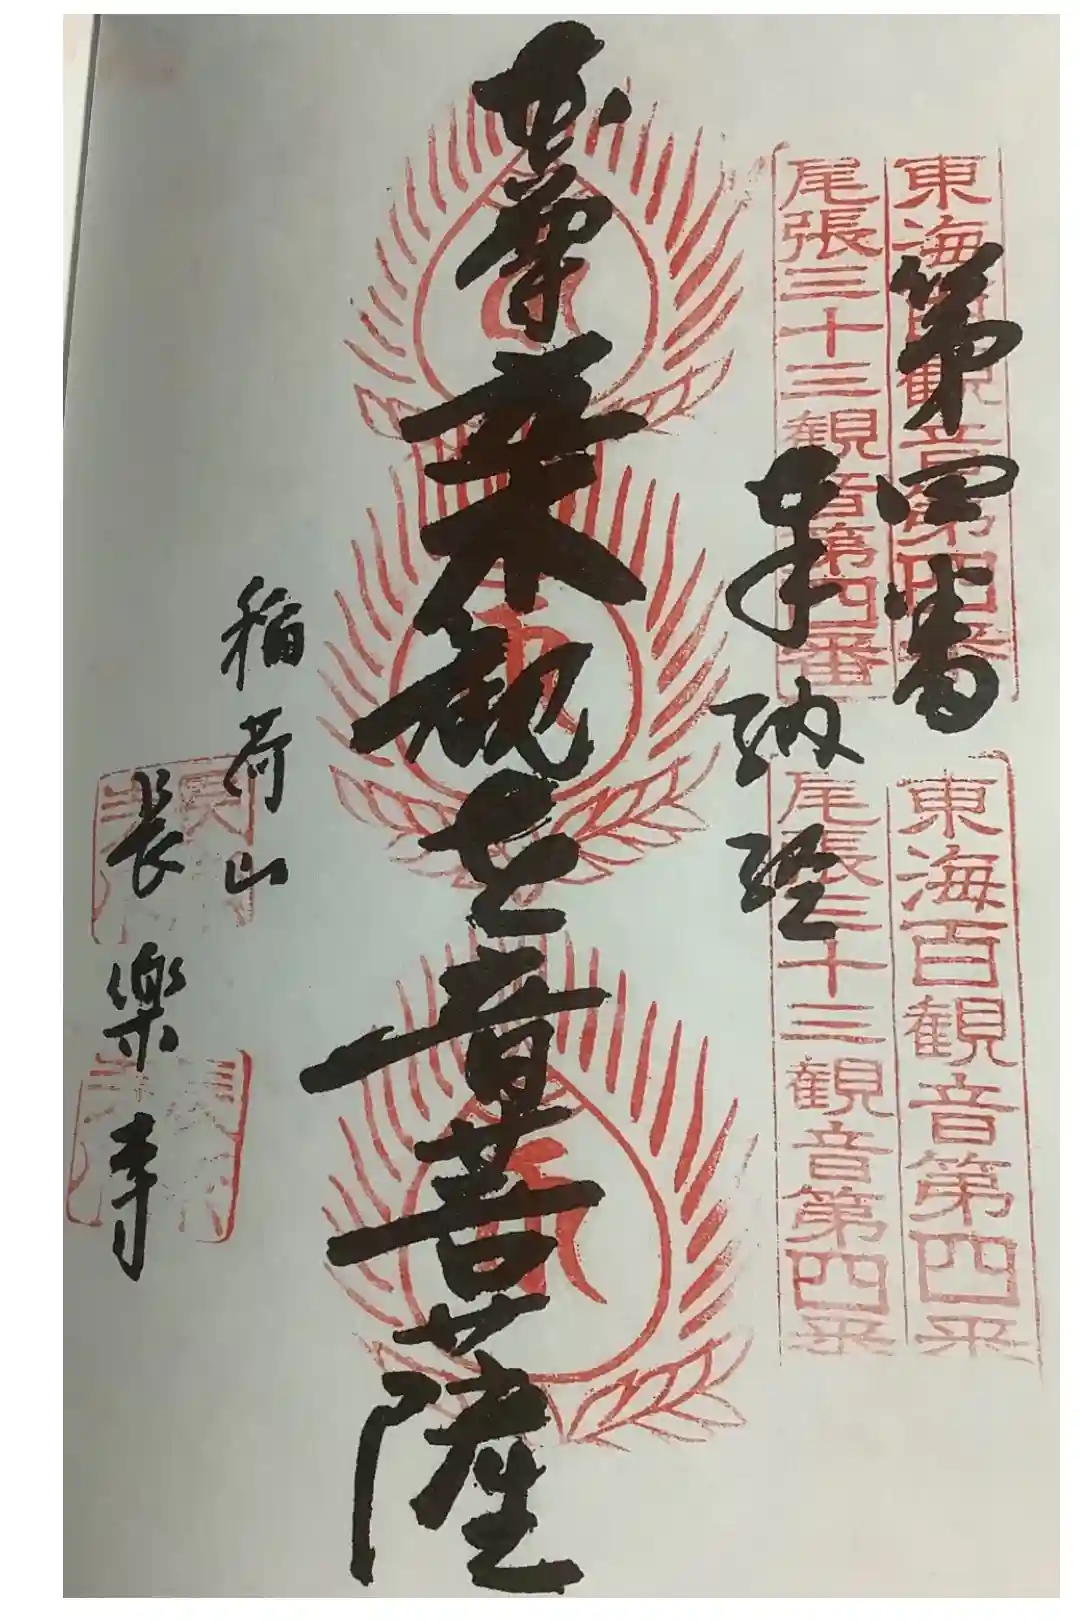 第四番
東海百観音第四番
尾張三十三観音第四番
奉納経
東海百観音第四
尾張三十三観音第四
尊 観世音菩薩
稲荷山
長樂寺